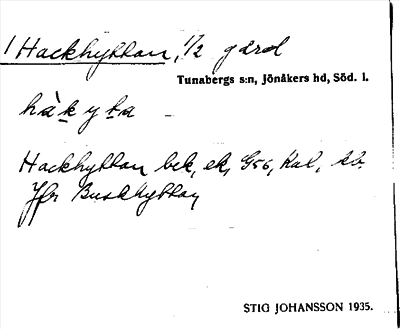 1 Hackhyttan, 1/2 gård
Tunabergs s:n, Jönåkers hd, Söd. l.
hàkyta
Hackhyttan bek, ek, G56, Kal, kb.
Jfr Buskhyttan
STIG JOHANSSON 1935.